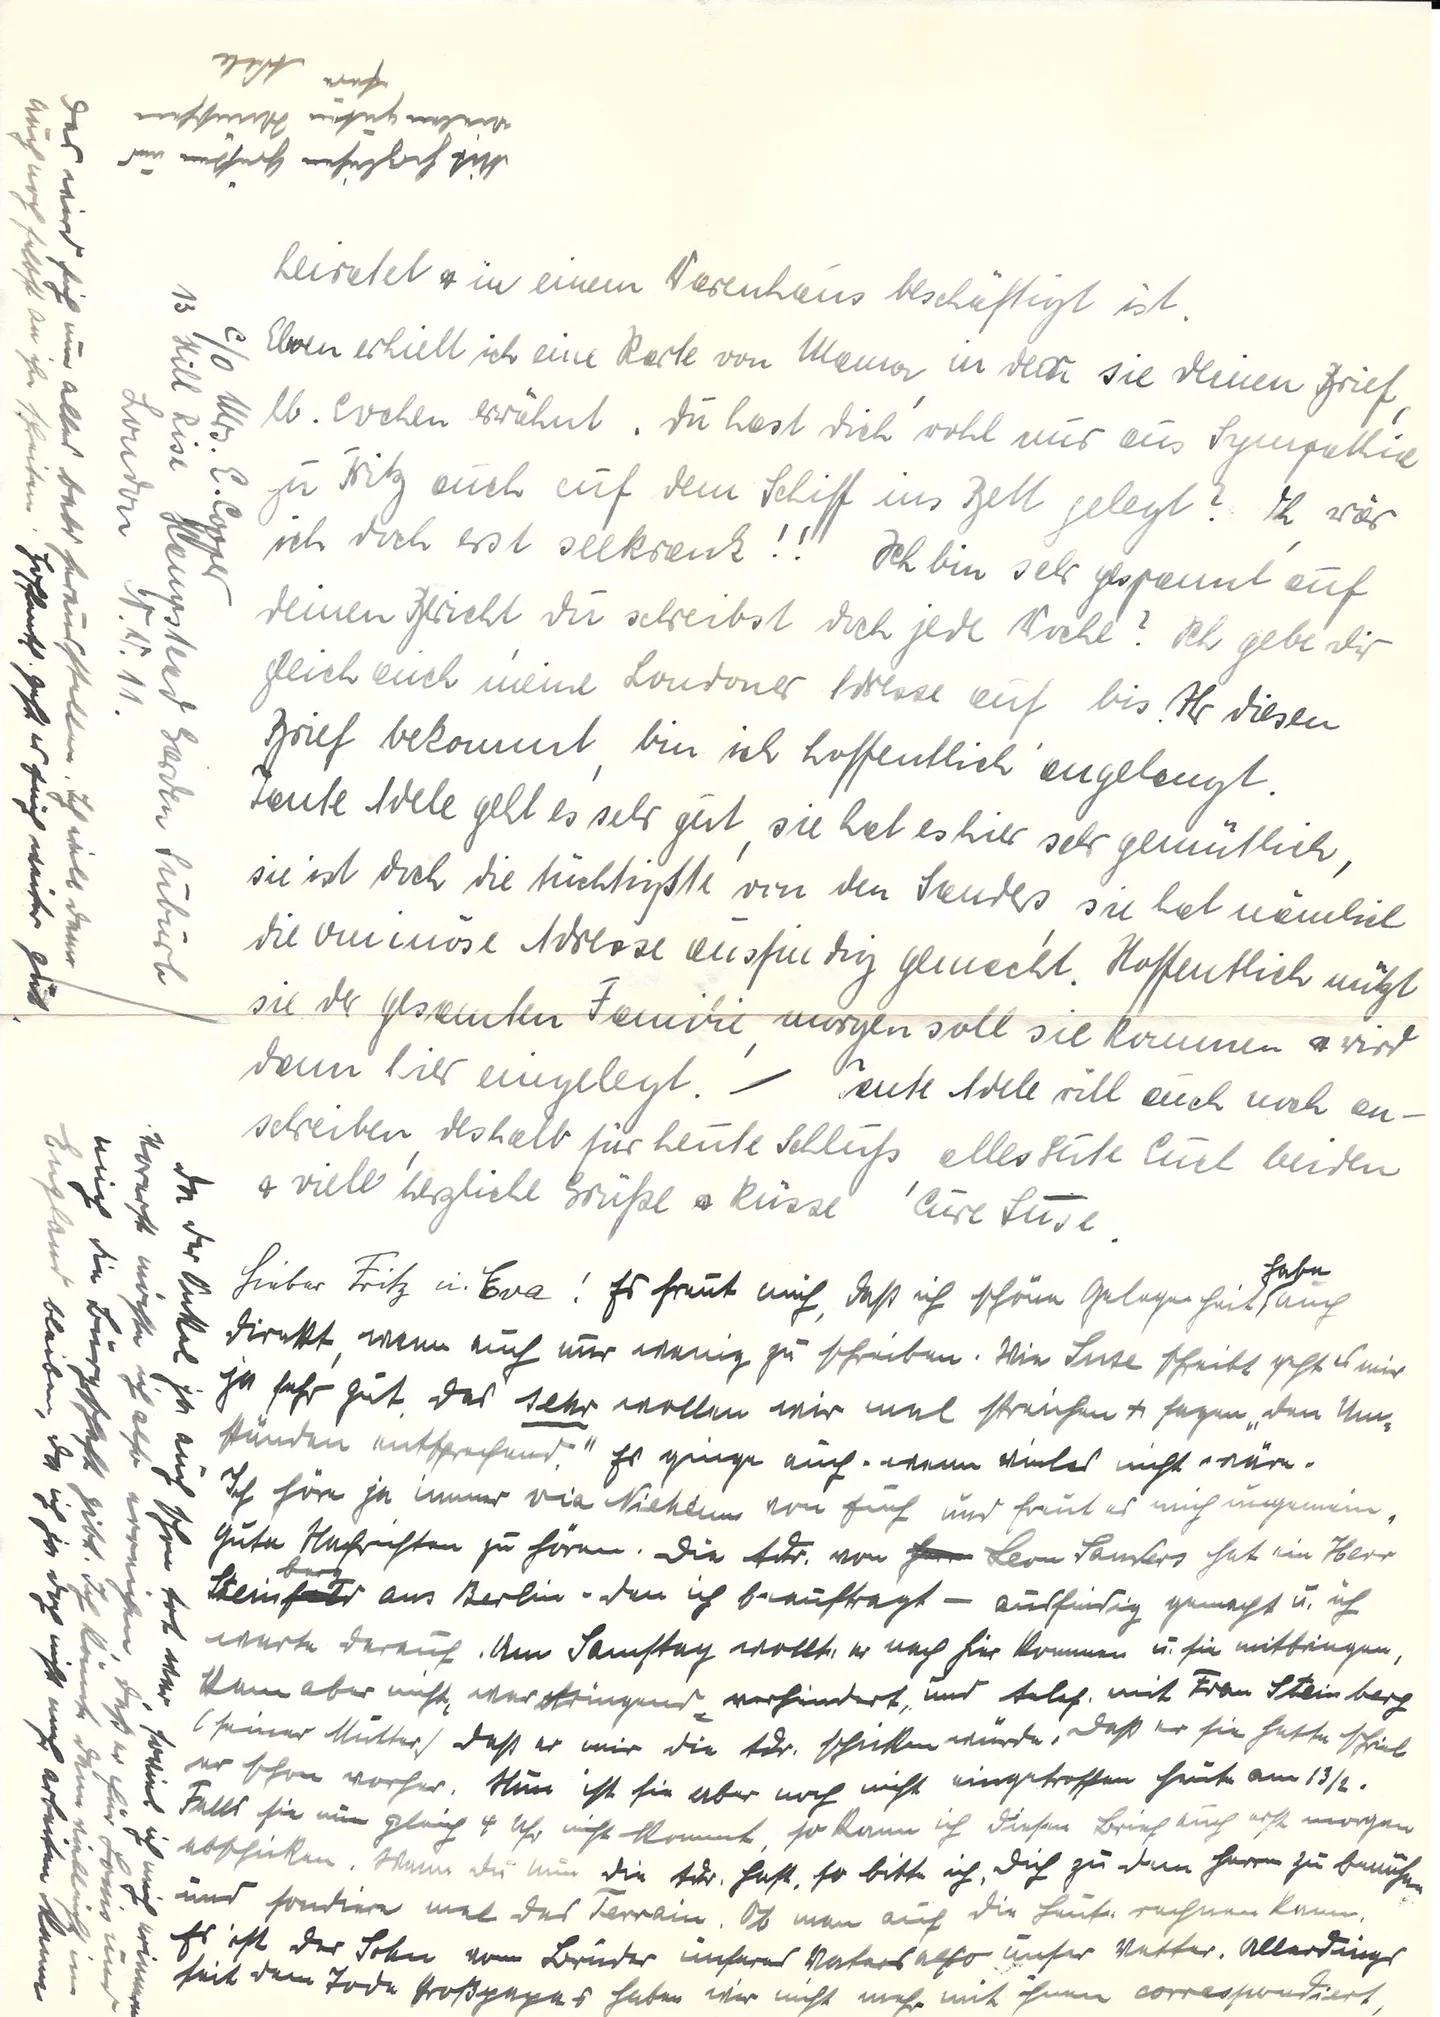 heiratet + in einem Warenhaus beschäftigt ist.
Eben erhielt ich eine Karte von Mama, in der sie deinen Brief,
lb. Evchen erwähnt. Du hast dich wohl nur aus Sympathie
zu Fritz auch auf dem Schiff ins Bett gelegt? Ih, wär
ich doch erst seekrank!! Ich bin sehr gespannt auf
deinen Bericht, du schreibst doch jede Woche? Ich gebe dir
gleich auch meine Londoner Adresse auf bis Ihr diesen
Brief bekommt, bin ich hoffentlich angelangt.
Tante Adele geht es sehr gut, sie hat es hier sehr gemütlich,
sie ist doch die tüchtigste von den Sanders, sie hat nämlich
die ominöse Adresse ausfindig gemacht. Hoffentlich nützt
sie der gesamten Familie, morgen soll sie kommen + wird
dann hier eingelegt. — Tante Adele will auch noch an-
schreiben, deshalb für heute Schluß, alles Gute Euch beiden
+ viele herzliche Grüße + Küsse Eure Suse.
Lieber Fritz u. Eva! Es freut mich, daß ich schöne Gelegenheit habe, auch
direkt, wenn auch nur wenig zu schreiben. Wie Suse schreibt geht es mir
ja sehr gut, das sehr wollen wir mal streichen + sagen „den Um-
ständen entsprechend." Es ginge auch - wenn vieles nicht wäre.
Ich höre ja immer via Nieheim von Euch und freut es mich ungemein,
gute Nachrichten zu hören. Die Adr. von Leon Sanders hat ein Herr
Steinberg aus Berlin - den ich beauftragt — ausfindig gemacht u. ich
warte darauf. Am Samstag wollte er nach hier kommen u. sie mitbringen,
kam aber nicht, war dringend verhindert, und telef. mit Frau Steinberg
(seiner Mutter) daß er mir die Adr. schicken würde, daß er sie hatte schrieb
er schon vorher. Nun ist sie aber noch nicht eingetroffen heute am 13/2.
Falls sie nun gleich 4 Uhr nicht kommt, so kann ich diesen Brief auch erst morgen
abschicken. Wenn du nun die Adr. hast, so bitte ich, dich zu dem Herrn zu bemühen
und sondiere mal das Terrain. Ob man auf die Leute rechnen kann.
Es ist der Sohn vom Bruder unseres Vaters also unser Vetter. Allerdings
seit dem Tode Großpapas haben wir nicht mehr mit ihnen correspondiert,
da der Onkel ja auch schon tot war, soviel ich mich erinnere
Vorerst möchte ich also erreichen, daß er für Louis und
mich die Bürgschaft gibt. Ich könnte dann vielleicht in
England bleiben, da ich ja doch nicht mehr arbeiten kann
c/o Mrs. E. Copper
13 Hill Rise Hampstead Garden Suburb
London N.W. 11.
Das wird sich nun alles bald herausstellen. Ich werde dann
auch noch selbst an ihn schreiben. Hoffentl. geht es Euch weiter gut.
Mit herzlichen Grüßen und
vielen guten Wünschen
Eure Adele